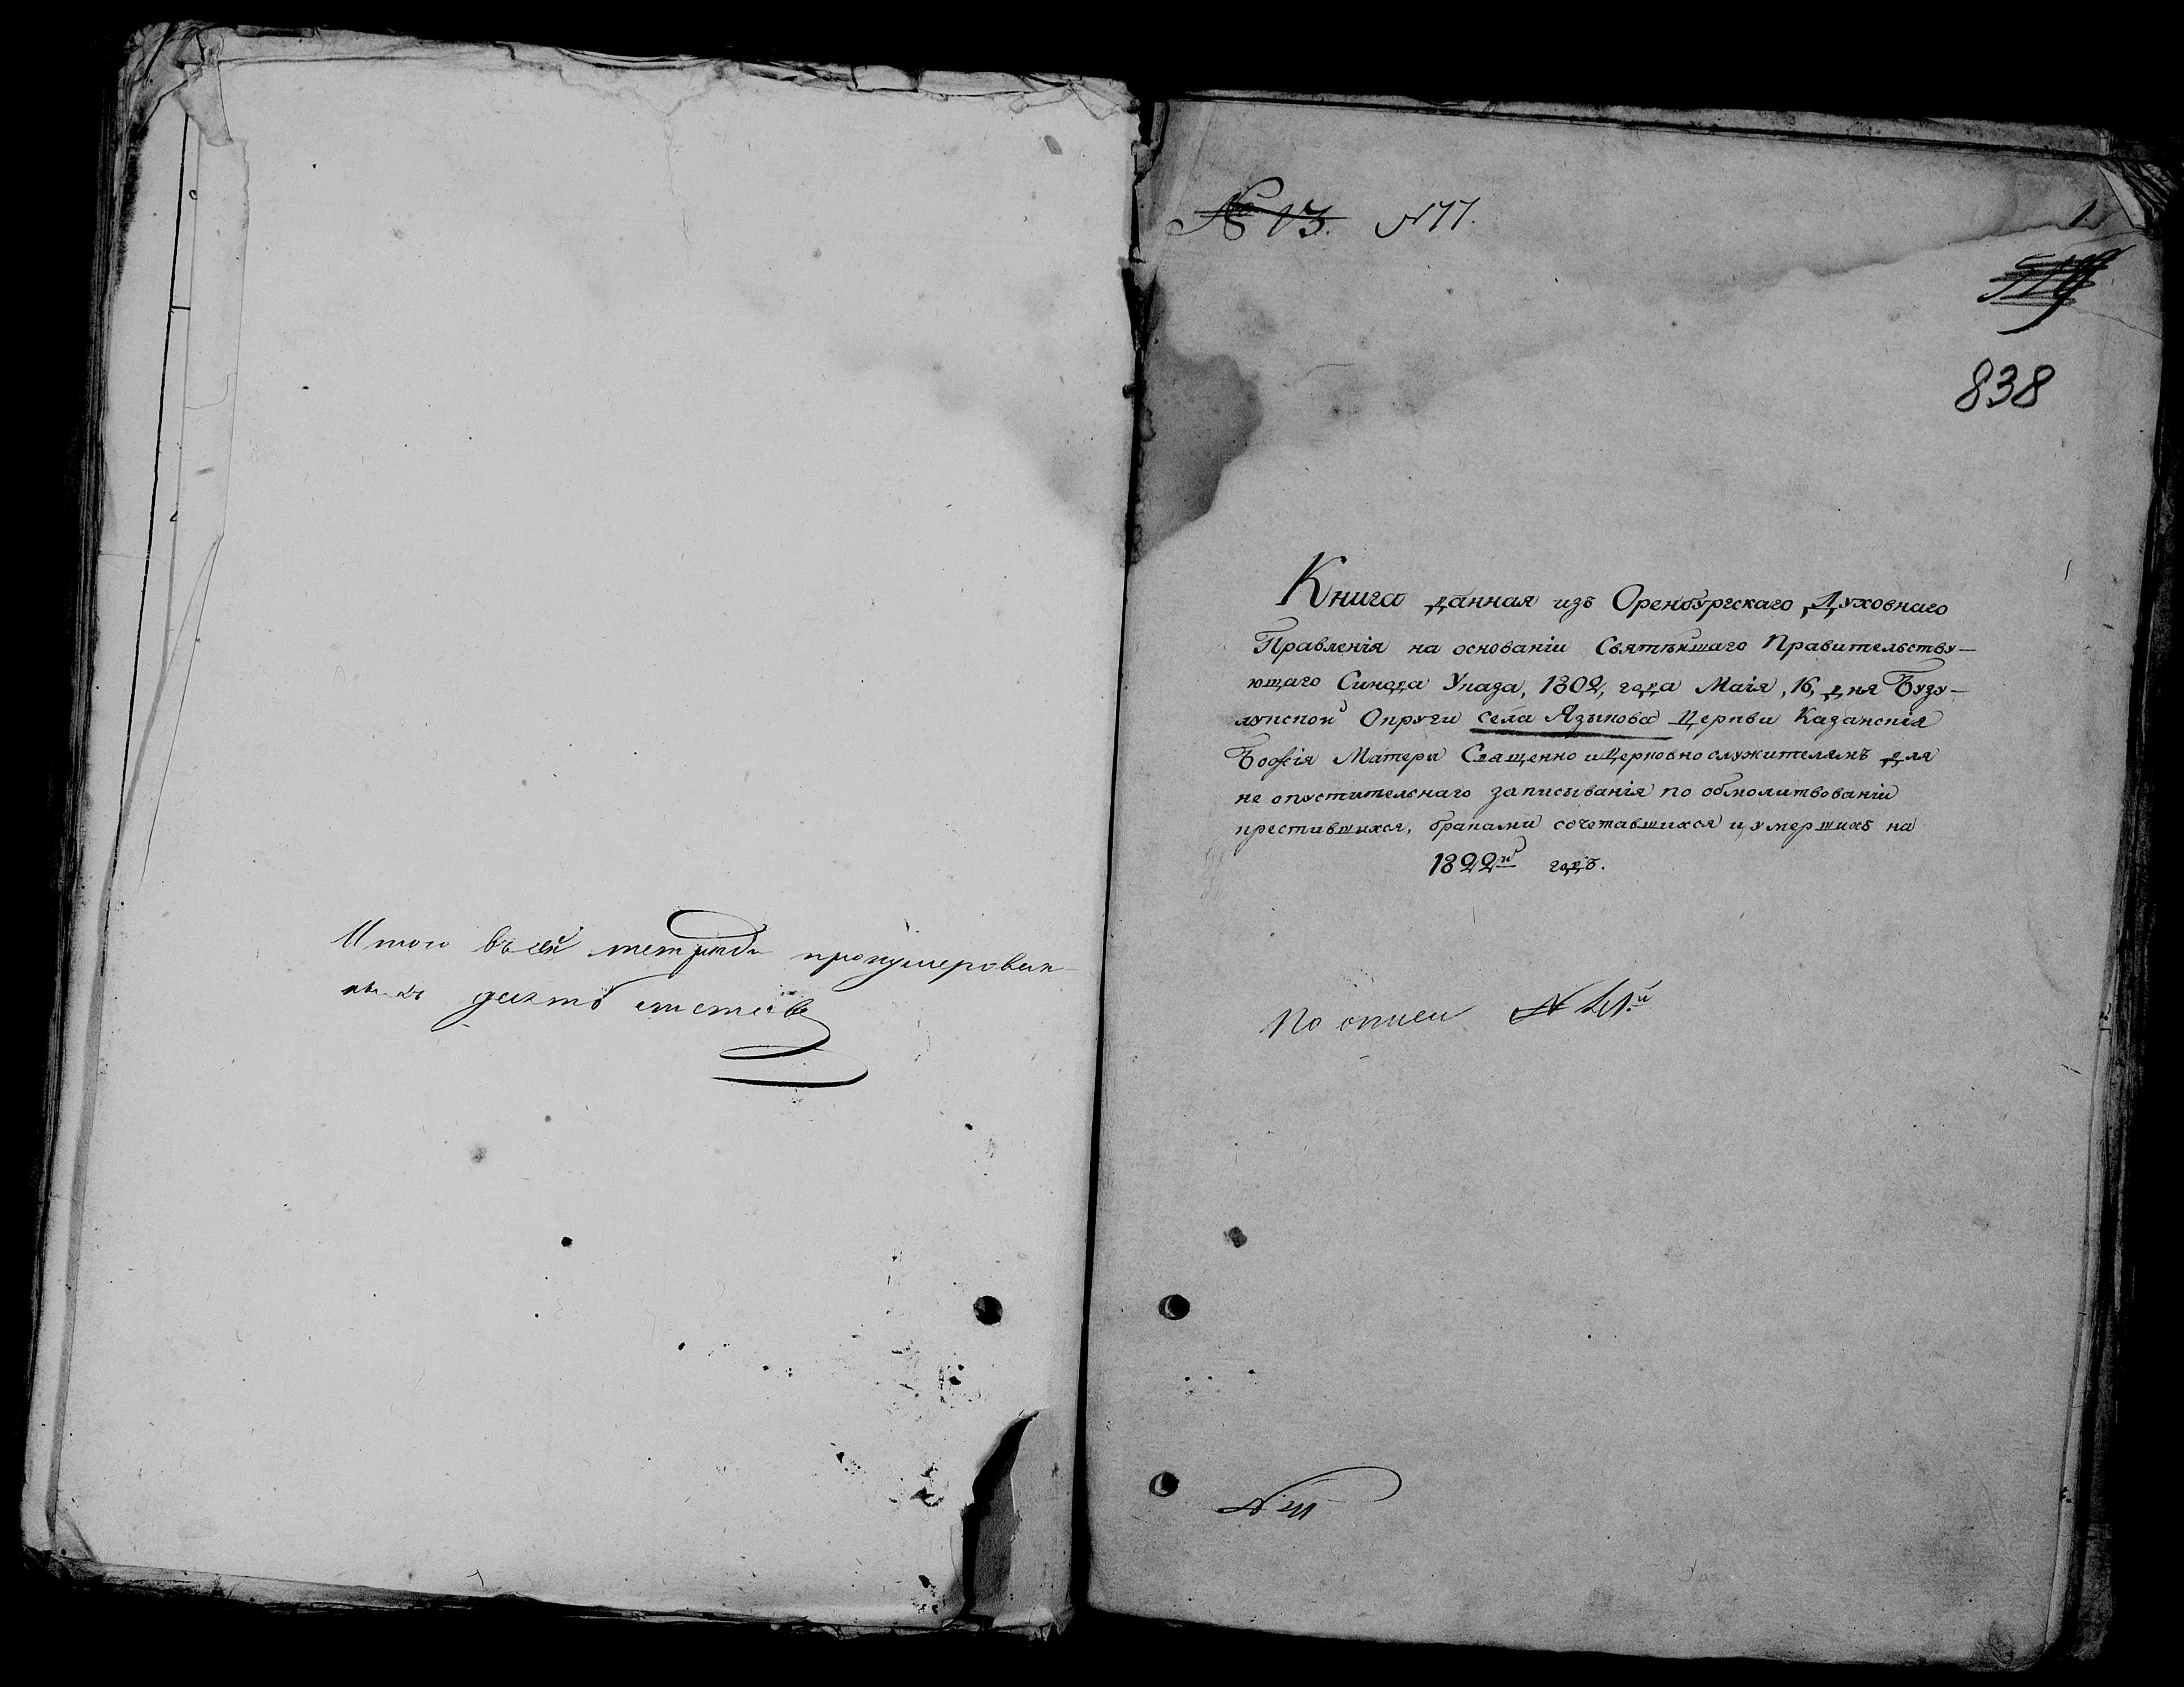 Итого въ сей тетради пронумерован-
ныхъ десять листовъ
№ 13. N 11.
1
838
Книга данная изъ Оренбургскаго Духовнаго
Правленія на основаніи Святѣйшаго Правительству-
ющаго Синода Указа, 1802, года Маія, 16, дня Бузу-
лукской Округи села Языкова Церкви Казанскія
Божія Матери Священно и Церковно служителямъ для
не опустительнаго записыванія по обмолитвованіи
крестившихся, браками сочетавшихся и умершихъ на
1822й годъ.
По описи N